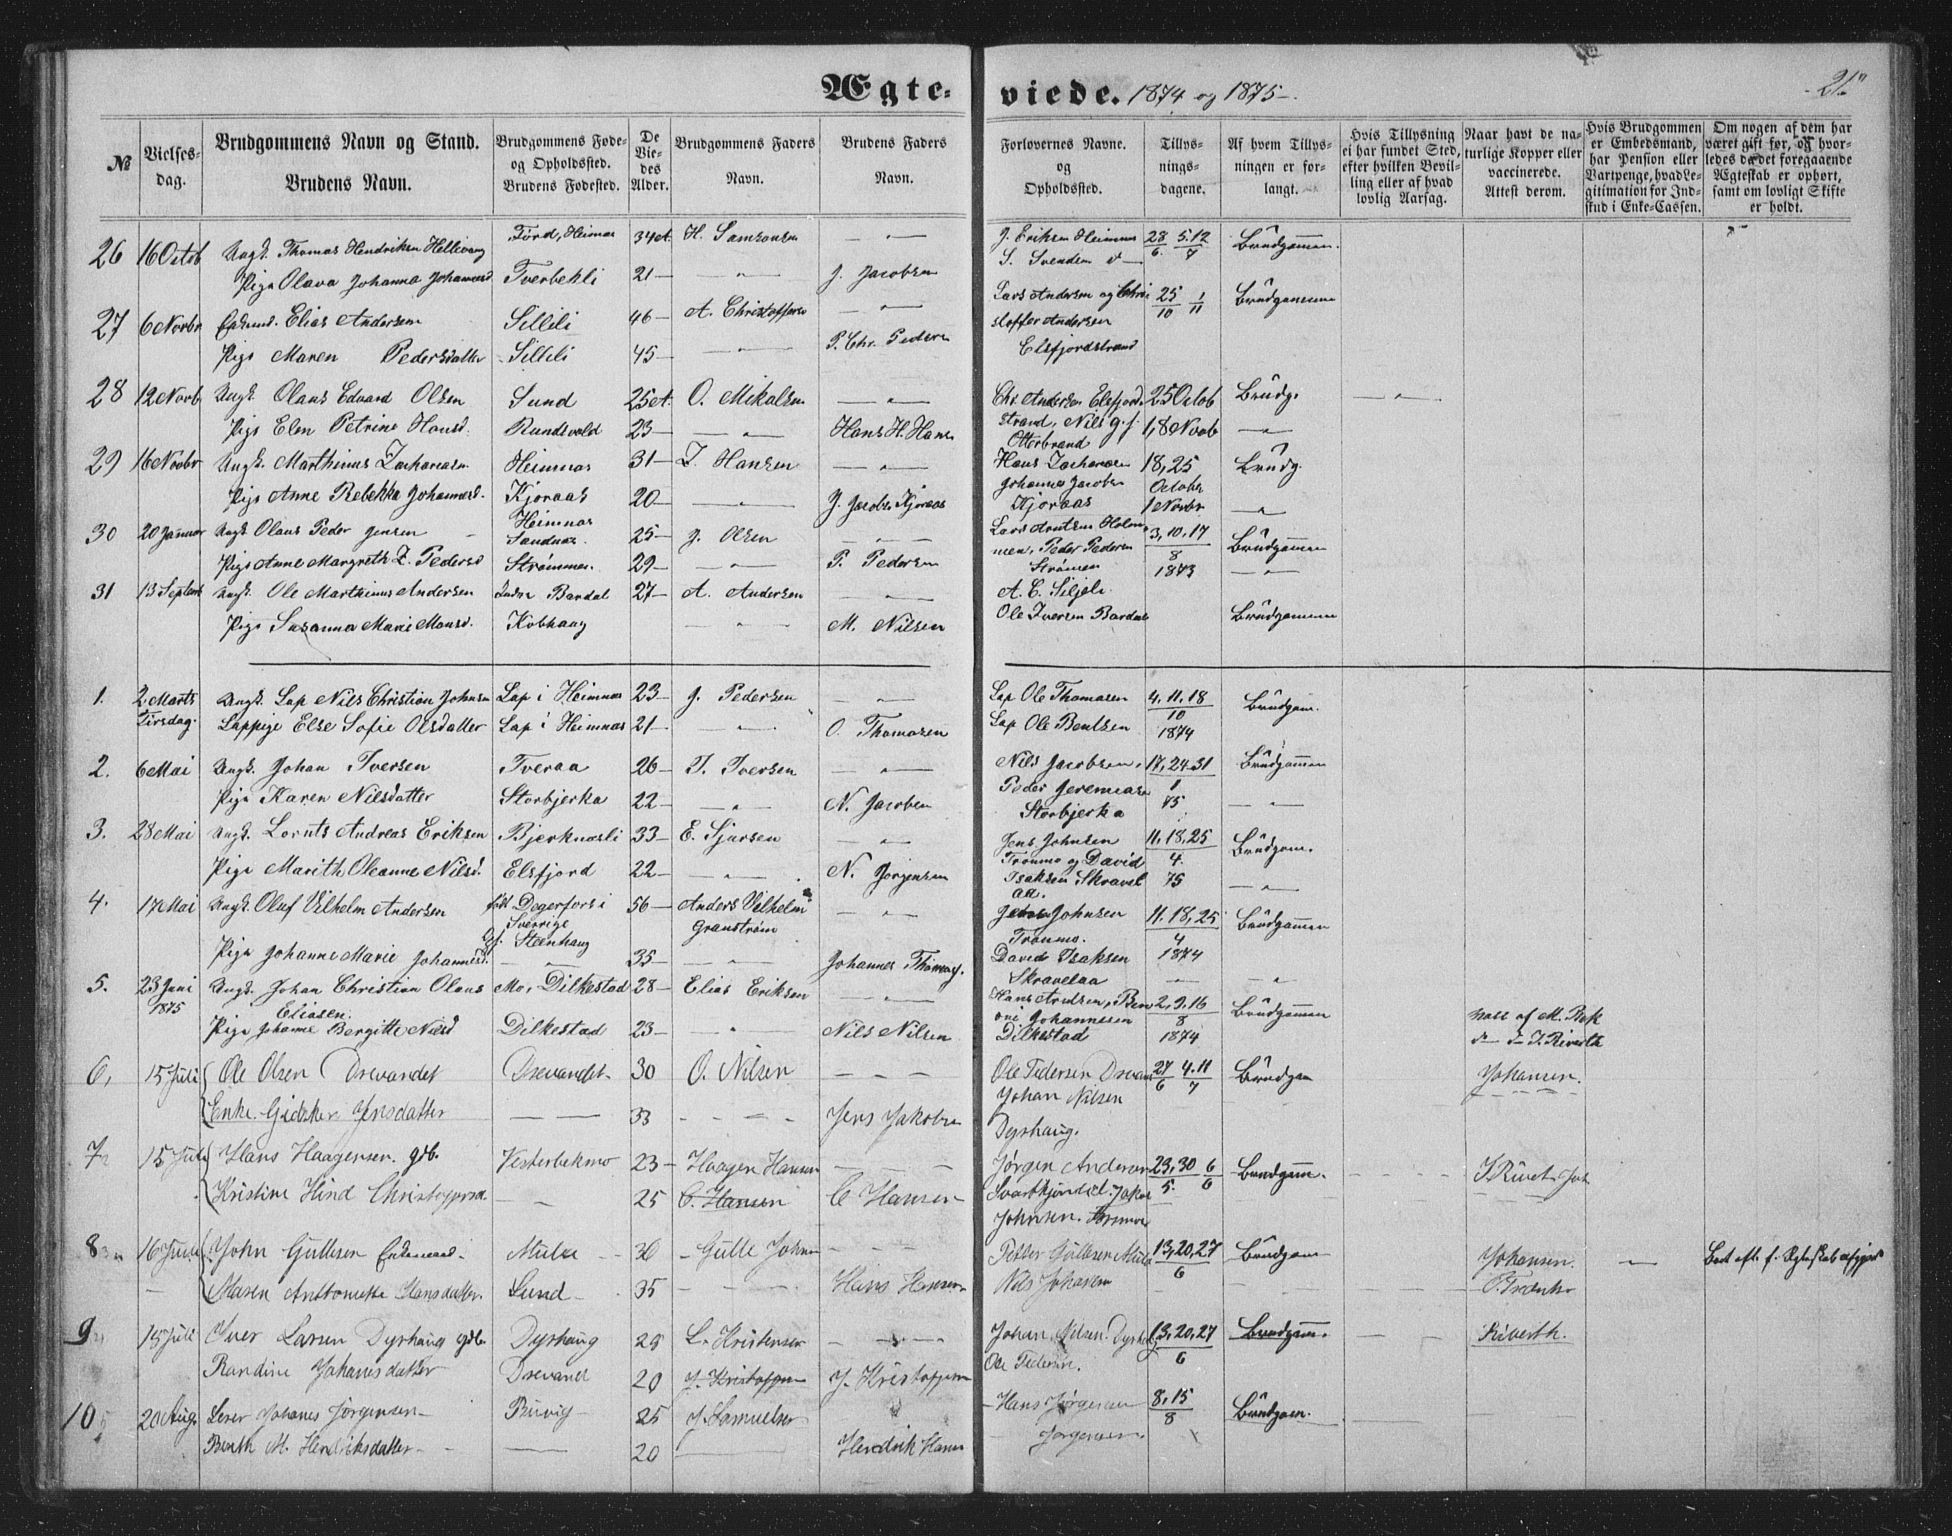 Ægte-
№
Vielses-
dag.
Brudgommens Navn og Stand.
Brudens Navn.
Brudgommens Føde-
og Opholdssted.
Brudens Fødested.
De
Vie-
des
Alder.
Brudgommens Faders
Navn.
Brudens Faders
Navn.
26 16 Octob Ungk. Thomas Hendriksen Hellivang Förd, Heimnæs 34 A. H. Samsonsen
Pige Olava Johanna Johannesd Tverbekli 21 — J. Jacobsen
27 6 Novbr Enkemd. Elias Andersen Sillili 46 — A. Christoffers
Pige Maren Pedersdatter Sillili 45 — P. Chr. Peders
28 12 Novb Ungk. Olaus Edvard Olsen Sund 25 A. O. Mikalsen
Pige Elen Petrine Hansd. Rundsvold 23 — Hans H. Hans
29 16 Novbr Ungk. Marthinus Zachariasen Heimnæs 31 — Z. Hansen
Pige Anne Rebekka Johannesd. Kjoraas 20 — J. Jacobs. Kjoraas
30 20 Januar Ungk. Olaus Peder Jensen Heimnæs Sandnæs. 25 — J. Olsen
Pige Anne Margreth Z. Pedersd Strømmen. 29 — P. Pedersen
31 13 Septemb Ungk. Ole Marthinus Andersen Indre Bardal 27 — A. Andersen
Pige Susanna Marie Monsd. Kobhaug — M. Nilsen
1. 2 Marts Ungk. Lap Nils Christian Johnsen Lap i Heimnæs 23 — J. Pedersen
Tirsdag. Lappige Else Sofie Olsdatter Lap i Heimnæs 21 — O. Thomasen
2. 6 Mai Ungk. Johan Iversen Tveraa 26 — I. Iversen
Pige Karen Nilsdatter Storbjerka 22 — N. Jacobsen
3. 28 Mai Ungk. Lornts Andreas Eriksen Bjerknæsli 33 — E. Sjursen
Pige Marith Oleanne Nilsd. Elsfjord 22 — N. Jørgensen
4. 17 Mai Ungk. Oluf Vilhelm Andersen født Degerfors i 56 — Anders Vilhelm
Sverrige Granstrøm
Steenhaug
Pige Johanne Marie Johannesd. 35 — Johannes Thomas.
5. 23 Juni Ungk. Johan Christian Olaus Mo, Dilkestad 28 — Elias Eriksen
1875 Eliasen.
Pige Johanne Bergitte Nilsd Dilkestad 23 — Nils Nilsen
6, 15 Juli Ole Olsen Drevandet Drevandet 30 O. Nilsen
Enke Gidsken Jensdatter 33 Jens Jakobsen
7 15 Juli Hans Haagensen gdb. Vesterbekmo 23 — Haagen Hansen
Kristine Hind Christoffersd 25 C. Hansen C Hansen
8 16 Juli John Gullesen Enkemand Mula 30 — Gulle Johns
Maren Anttonette Hansdatter Lund 35 Hans Hansen
9 15 Juli Iver Larsen Dyrhaug gdb. Dyrhaug 25 L. Kristensen
Randine Johanesdatter Drevand 20 J. Kristoffersen J. Kristoffersen
10 20 Aug. Johanes Jørgensen 25 J. Samuelsen
Berith M. Hendriksdatter 20 Hendrik Hans
viede. 1874 og 1875
21.
Forlovernes Navne.
og
Opholdssted.
Tillys-
nings-
dagene.
Af hvem Tillys-
ningen er for-
langt.
Hvis Tillysning
ei har fundet Sted,
efter hvilken Bevil-
ling eller af hvad
lovlig Aarsag.
Naar havt de na-
turlige Kopper eller
vaccinerede.
Attest derom.
Hvis Brudgommen
er Embedsmand,
har Pension eller
Vartpenge, hvad Le-
gitimation for Ind-
skud i Enke-Cassen.
Om nogen af dem har
været gift før, og hvor-
ledes da det foregaaende
Ægteskab er ophørt,
samt om lovligt Skifte
er holdt.
J. Eriksen Heimnæs 28/6 5.12/7 Brudgommen.
S. Svendsen
Lars Andersen og Chri 25/10 1/11 Brudgommen
stoffer Andersen
Elsfjordstrand
Chr. Andersen Elsfjord 25 Octob Brudg.
strand, Nils 1, 8 Novb
Otterbrand
Hans Zachariasen 18, 25 Brudg.
Johannes Jacobs October
Kjoraas 1 Novbr
Lars Arntsen Holm 3, 10, 17 Brudgommen
men, Peder Pedersen 8
Strømen 1873
A. C. Siljeli.
Ole Iversen Bardal Brudgommen
Lap Ole Thomasen 4, 11, 18 Brudgom.
Lap Ole Bentsen 10
1874
Nils Jacobsen, 17, 24. 31 Brudgommen
Peder Jeremiasen 1
Storbjerka 75
Jens Johnsen 11, 18, 25 Brudgom.
Tronmo og David 4.
Isaksen Skravel 75
aa.
Jens Johnsen 11. 18, 25 Brudgommen
Tronmo. 4
David Isaksen 1874
Skravelaa
Hans Arntsen, Ben 2, 9, 16 Brudgommen
oni Johannesen 8
Dilkestad 1874
vacc af M. Bek
d— d— I. Riverth
Ole Pedersen Drevand 27/6 4.11/7 Brudgom Johansen.
Johan Nilsen
Dyrhaug.
Jørgen Andersen 23, 30/5 6/6 Brudgom.
Svartkjøndli. Jakob
Johnsen.
Petter Gullesen Mula 13, 20, 27 Brudgom Johansen.
Nils Johansen 6
Johan Nilsen. Dyrhaug 13, 20, 27 Brudgom. Riverth.
Ole Pedersen. 6
Hans Jørgensen 8, 15 Brudgom.
Jørgensen 8